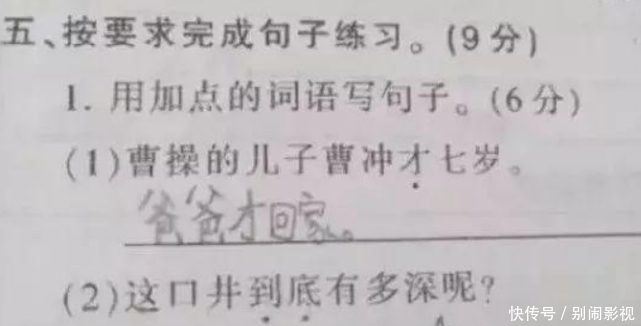 五、按要求完成句子练习。(9分)
1. 用加点的词语写句子。(6分)
(1)曹操的儿子曹冲才七岁。
爸爸才回家。
(2)这口井到底有多深呢?
快传号/别闹影视